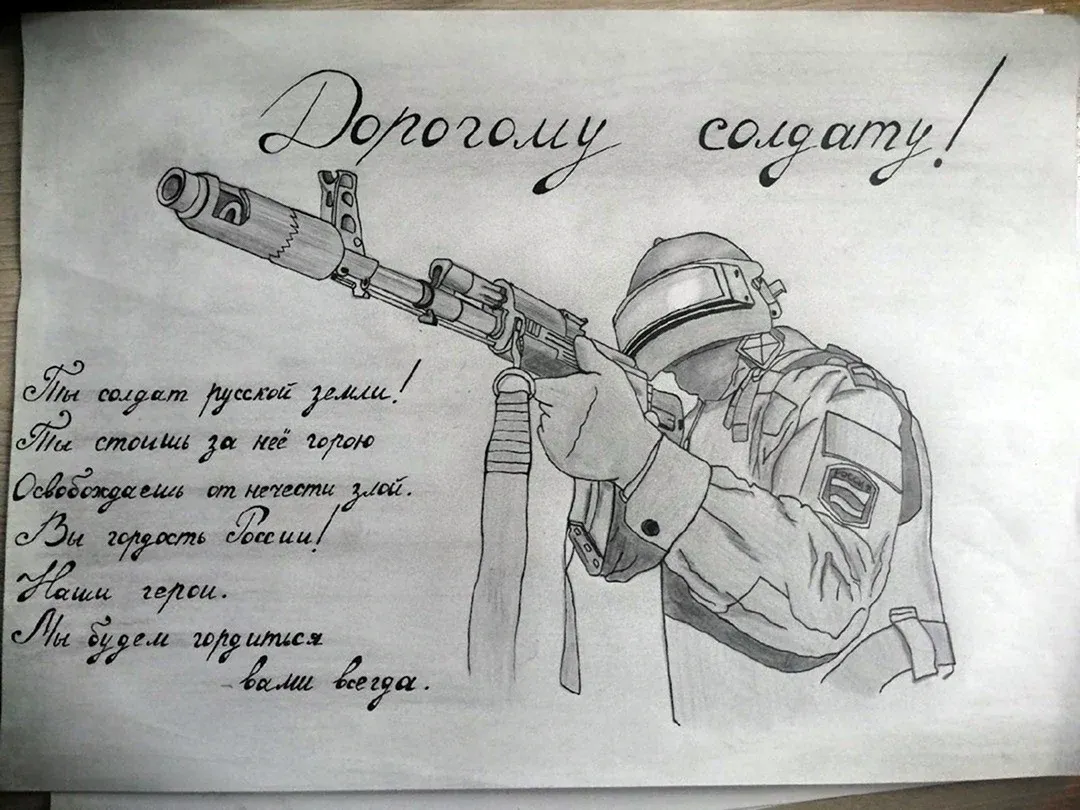 Дорогому солдату!
Ты солдат русской земли!
Ты стоишь за неё горою
Освобождаешь от нечести злой.
Вы гордость России!
Наши герои.
Мы будем гордиться
вами всегда.
РОССИЯ